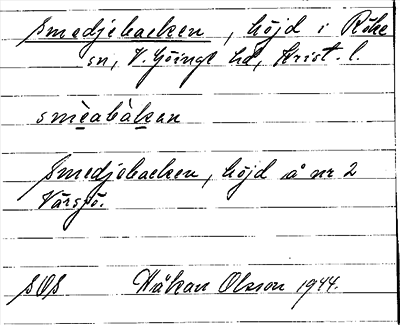 Smedjebacken, höjd i Röke
sn, V. Göinge hd, Krist. l.
smèabàkan
Smedjebacken, höjd å nr 2
Värsjö.
SOS Håkan Olsson 1944.